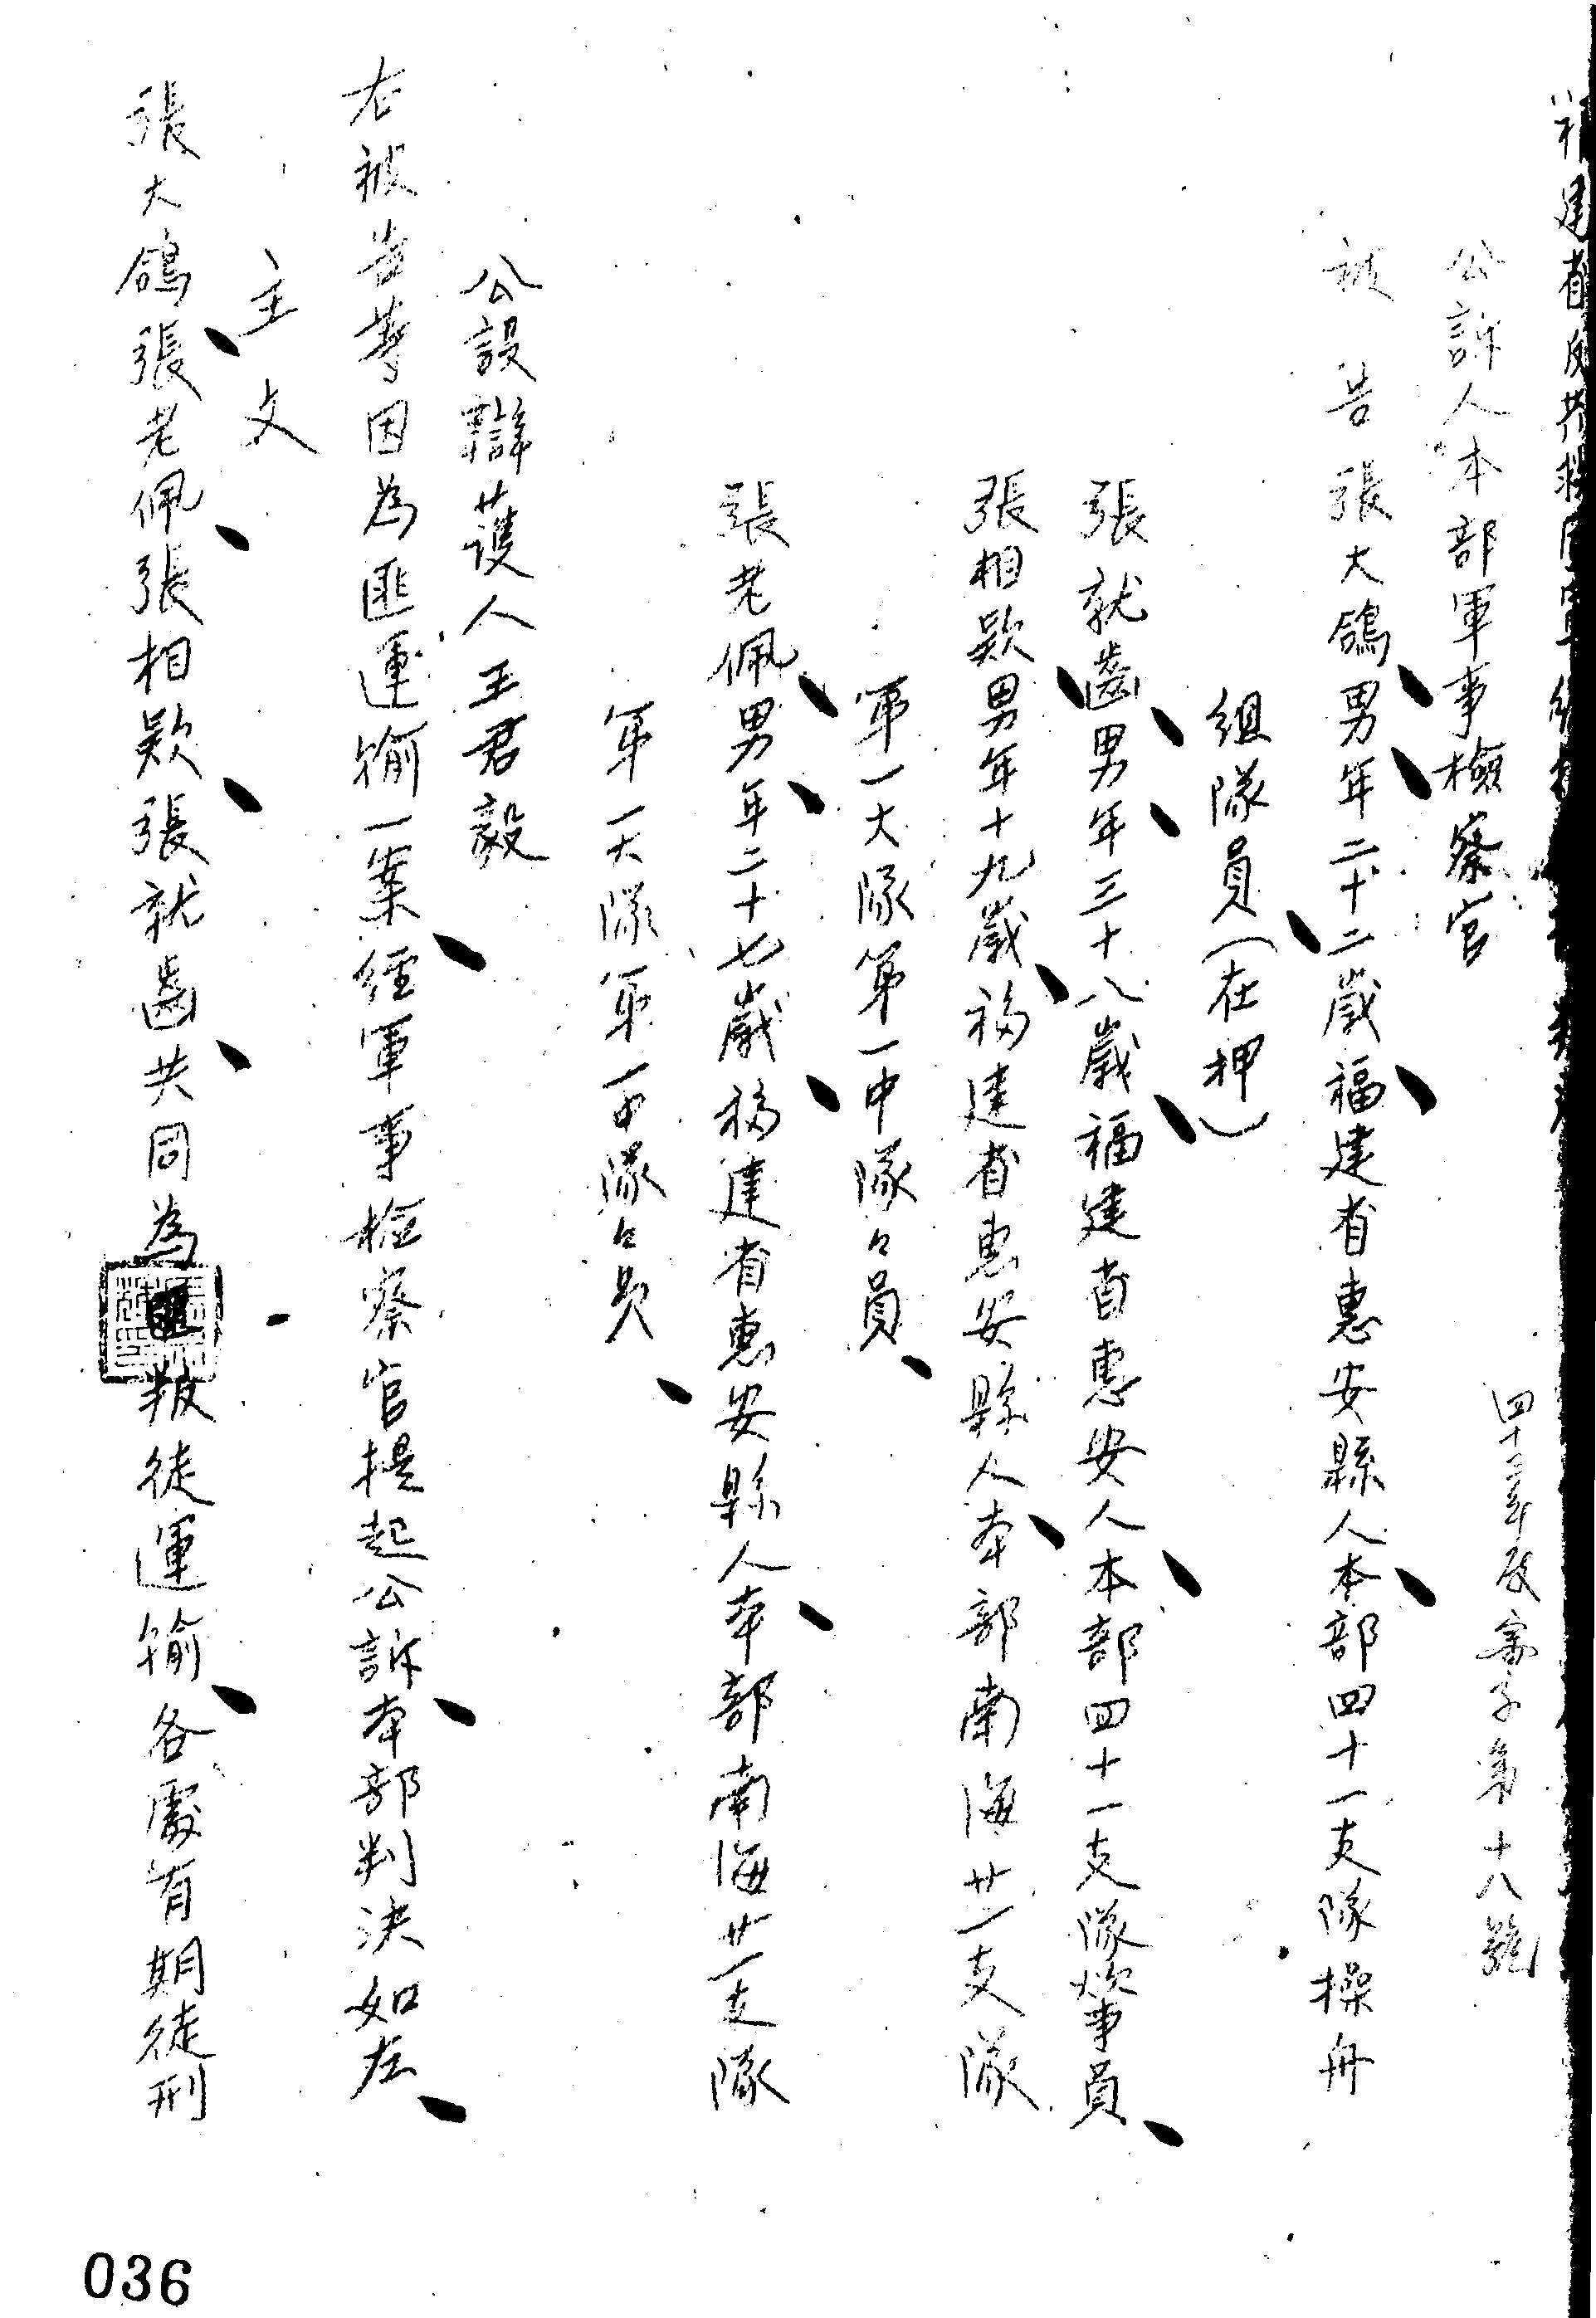 福建省反共救國軍總指揮部判決
四十二年度審字第十八號
公訴人本部軍事檢察官
被告張大鴿男年二十二歲福建省惠安縣人本部四十一支隊操舟
組隊員(在押)
張就齒男年三十八歲福建省惠安人本部四十一支隊炊事員
張相欵男年十九歲福建省惠安縣人本部南海廿一支隊
第一大隊第一中隊々員
張老佩男年二十七歲福建省惠安縣人本部南海廿一支隊
第一大隊第一中隊々員
公設辯護人王君毅
右被告等因為匪運输一案經軍事檢察官提起公訴本部判決如左
主文
張大鴿張老佩張相欵張就齒共同為叛徒運输各處有期徒刑
036